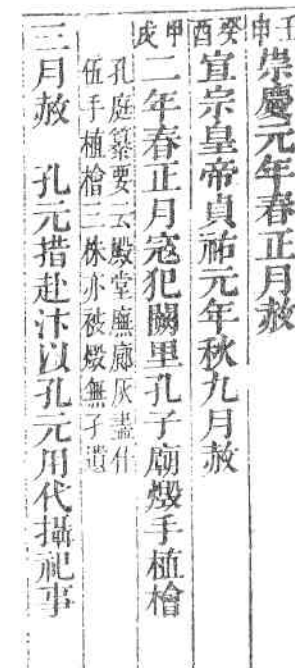 壬申崇慶元年春正月赦
癸酉宣宗皇帝貞祐元年秋九月赦
甲戌二年春正月寇犯闕里孔子廟燬手植檜
孔庭纂要云殿堂廡廊灰盡什
伍手植檜三株亦被燬無孑遺
三月赦　孔元措赴汴以孔元用代攝祀事